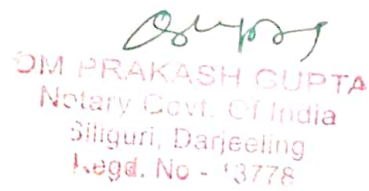 Gupta
OM PRAKASH GUPTA
Notary Govt. Of India
Siliguri, Darjeeling
Regd. No - 13778